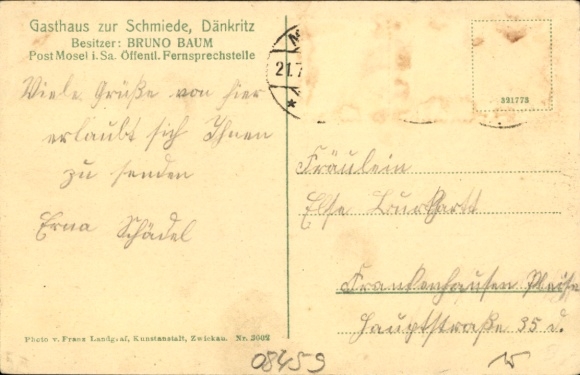 Gasthaus zur Schmiede, Dänkritz
Besitzer: BRUNO BAUM
Post Mosel i. Sa. Öffentl. Fernsprechstelle
21.7
391778
Viele Grüße von hier
erlaubt sich Ihnen
zu senden
Erna Schädel
Fräulein
Else Burkhardt
Frankenhausen Pleiße
Hauptstraße 35 d.
Photo v. Franz Landgraf, Kunstanstalt, Zwickau. Nr. 3002
08459